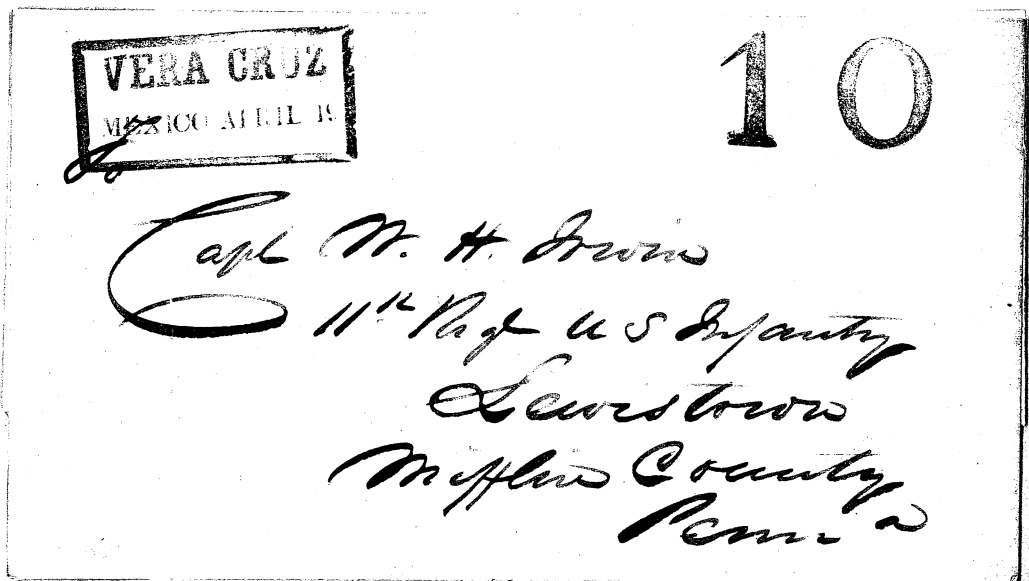 VERA CRUZ
MEXICO APRIL 19
10
Capt W. H. Irwin
11th Regt U S Infantry
Lewistown
Mifflin County
Penna